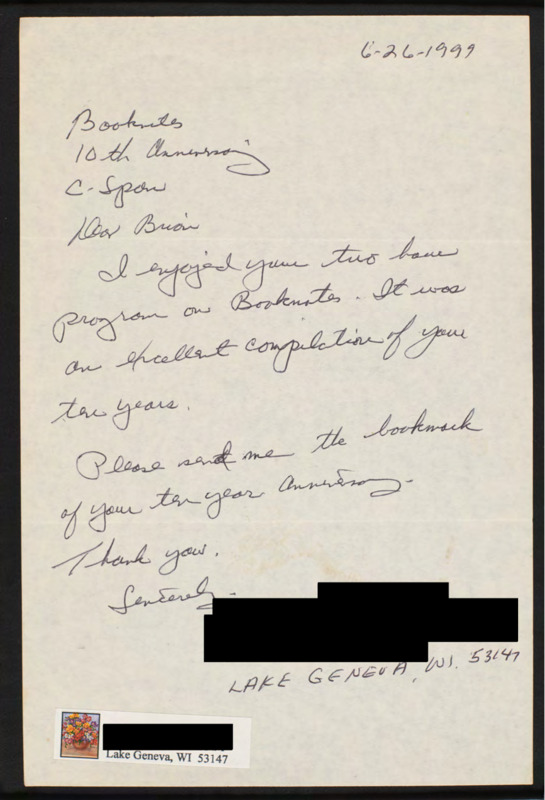 6-26-1999
Booknotes
10th Anniversary
C-Span
Dear Brian
I enjoyed your two hour
program on Booknotes. It was
an excellent compilation of your
ten years.
Please send me the bookmark
of your ten year anniversary.
Thank you.
Sincerely,
LAKE GENEVA, WI. 53147
Lake Geneva, WI 53147